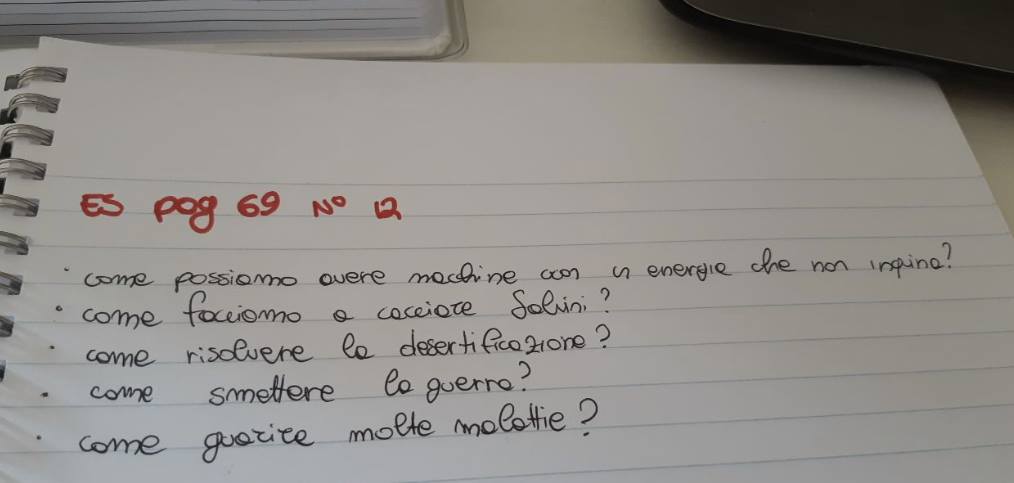 ES pag 69 N° 12
• come possiamo avere macchine con un energia che non inquina?
• come facciamo a cacciare Salvini?
• come risolvere la desertificazione?
• come smettere la guerra?
• come guarire molte malattie?